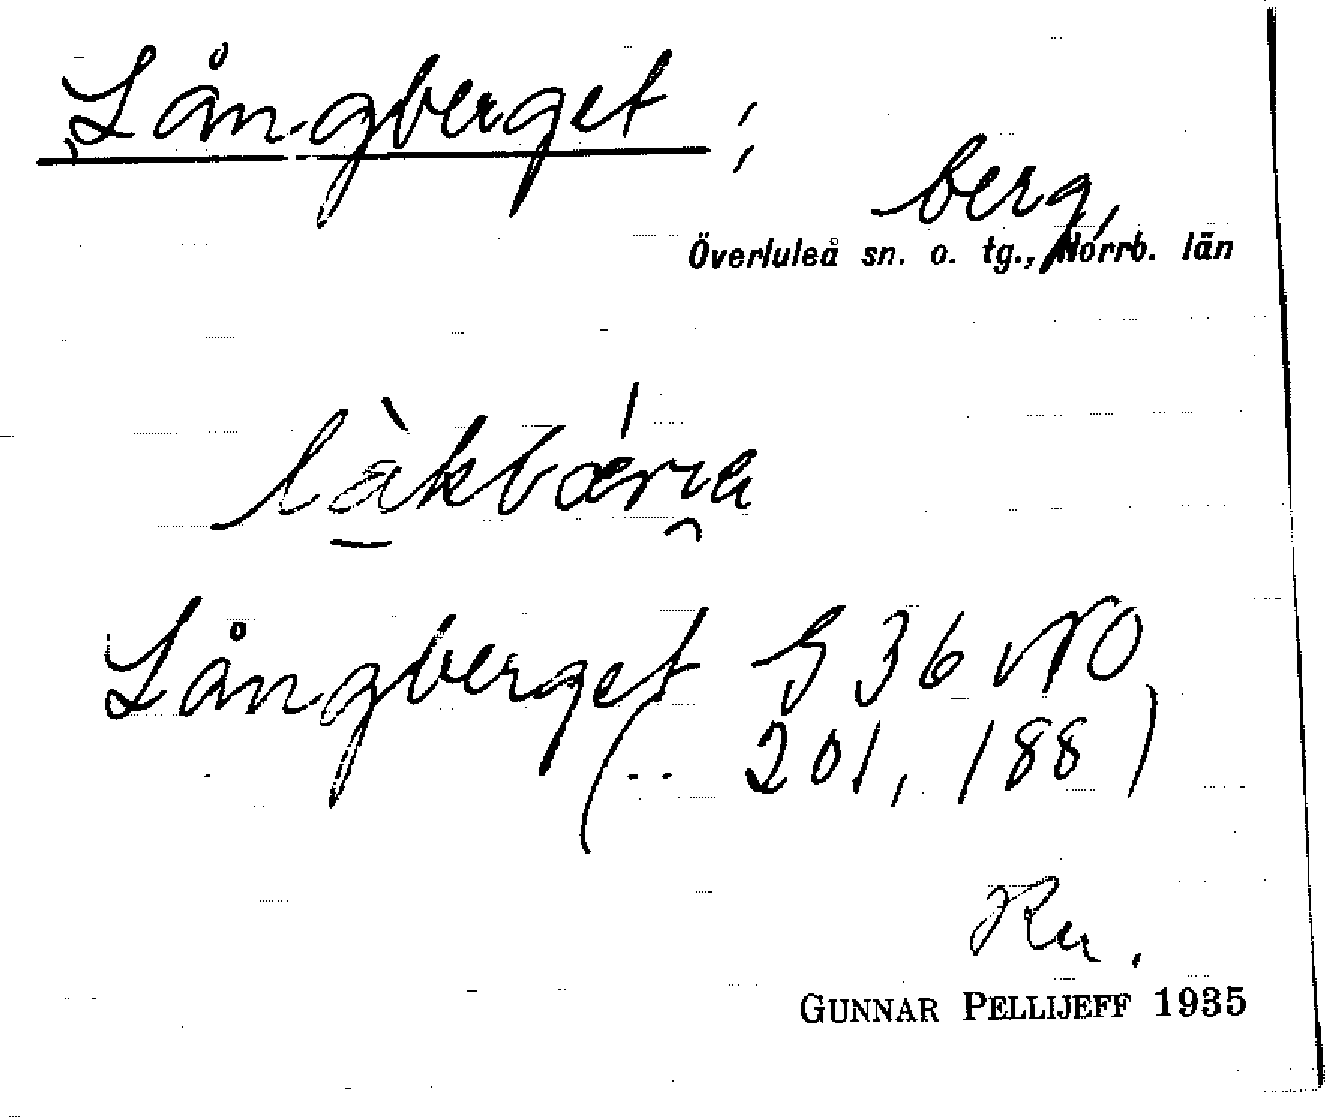 Långberget ;
berg,
Överluleå sn. o. tg., Norrb. län
Långberget G 36 NO
(.. 201, 188)
GUNNAR PELLIJEFF 1935